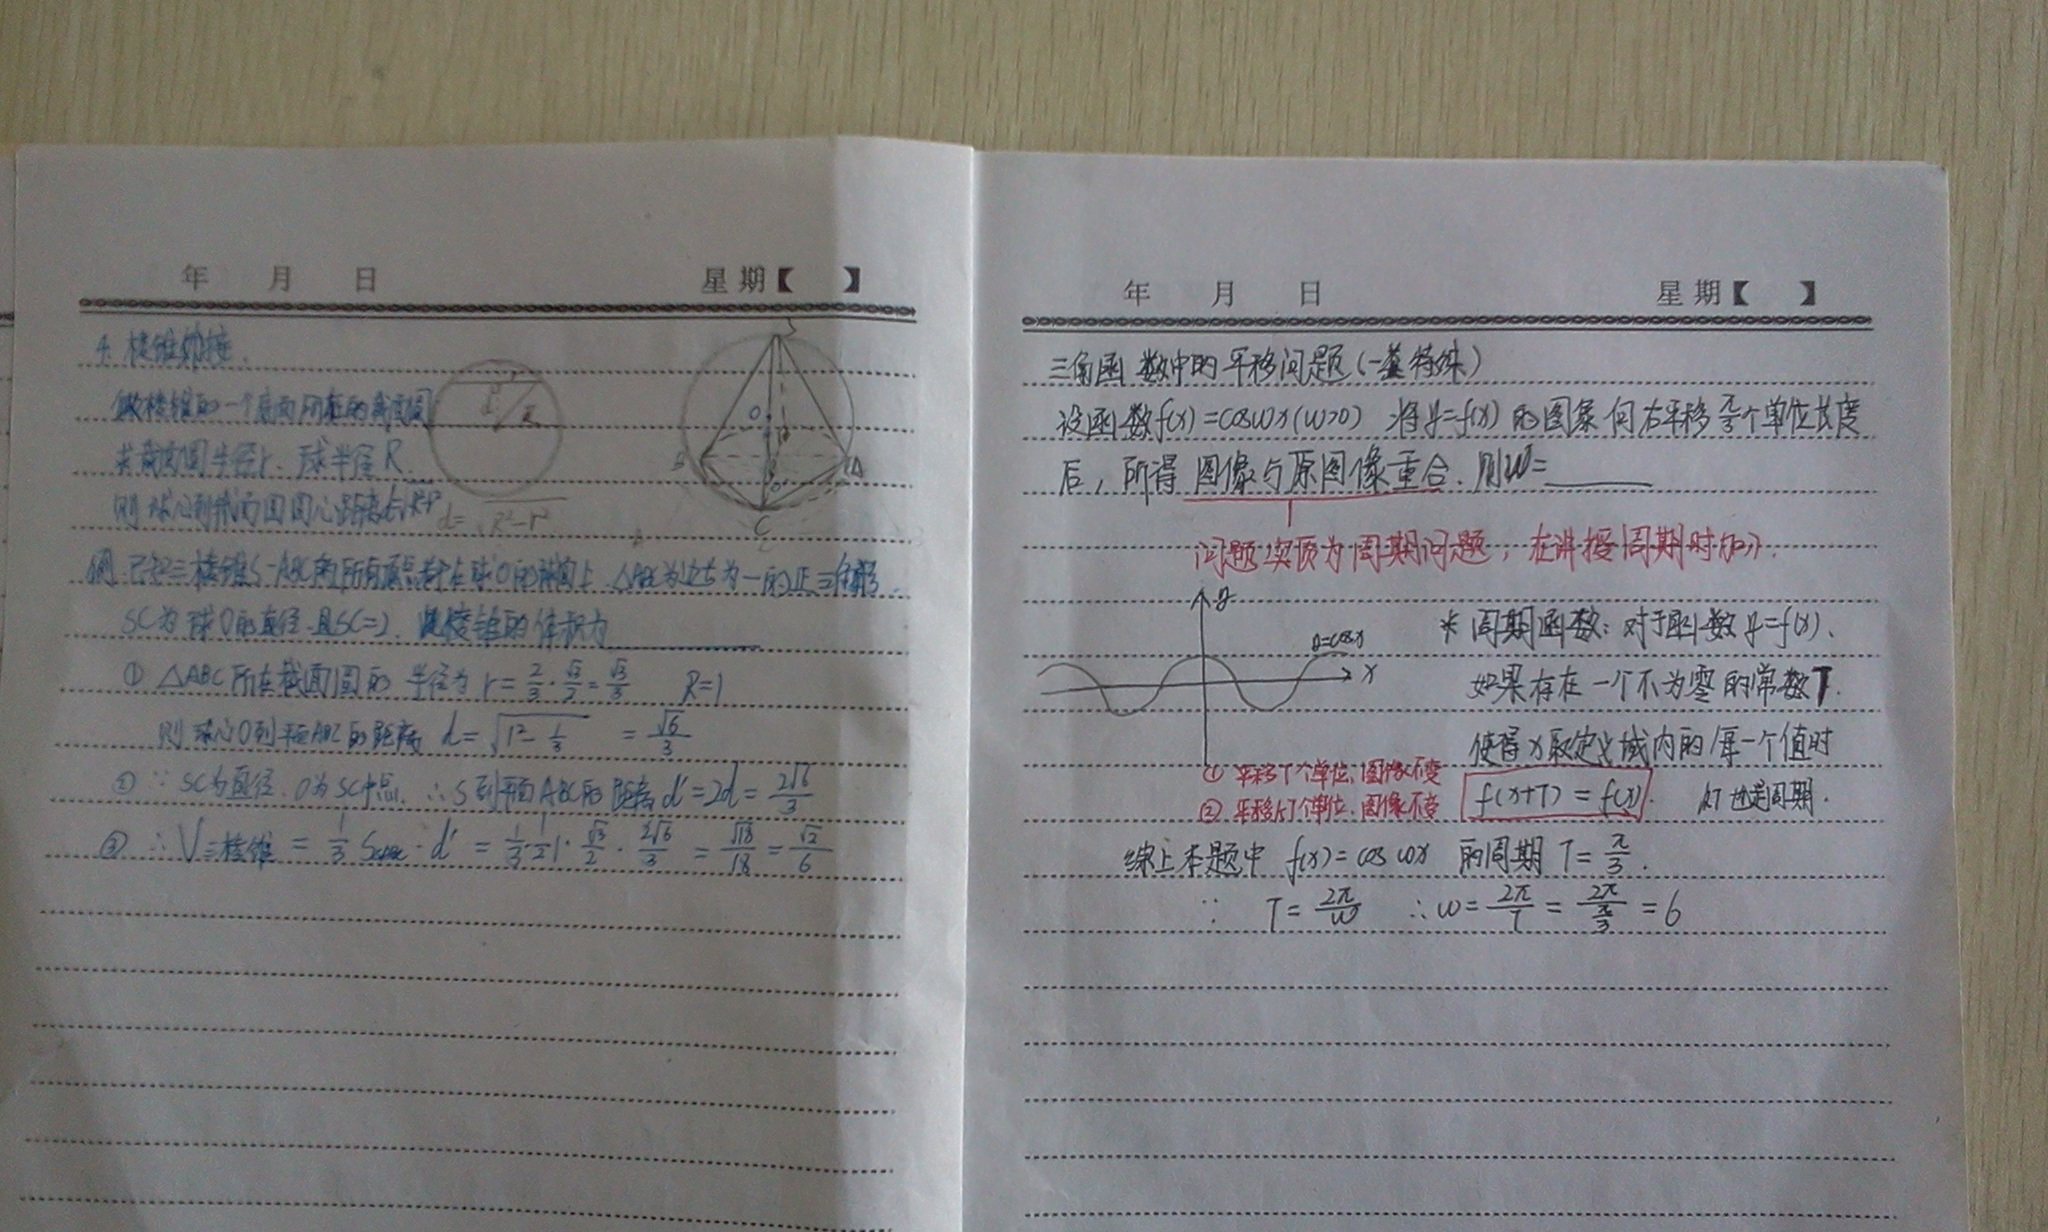 年 月 日 星期【 】
4. 棱锥外接.
做棱锥的一个底面所在的截面圆
求截面圆半径r、球半径R.
则球心到截面圆圆心距离 d=√R²-r²
例. 已知三棱锥S-ABC的所有顶点都在球O的球面上. △ABC为边长为一的正三角形.
SC为球O的直径.且SC=2. 此棱锥的体积为
① △ABC所在截面圆的半径为 r=2/3·√3/2=√3/3 R=1
则球心O到平面ABC的距离 d=√1²-1/3 =√6/3
② ∵SC为直径. O为SC中点. ∴S到平面ABC的距离d'=2d=2√6/3
③ ∴V三棱锥=1/3 S△ABC·d'=1/3·1/2·1·√3/2·2√6/3=√18/18=√2/6
R
O
S
B
A
C
O'
年 月 日 星期【 】
三角函数中的平移问题(一类特殊)
设函数f(x)=cosωx(ω>0) 将y=f(x)的图象向右平移π/3个单位长度
后，所得图像与原图像重合. 则ω=
问题实质为周期问题，在讲授周期时加入.
y
y=cosx
x
* 周期函数：对于函数y=f(x).
如果存在一个不为零的常数T.
使得x取定义域内的每一个值时
f(x+T)=f(x). kT也是周期.
① 平移T个单位，图像不变
② 平移kT个单位，图像不变
综上本题中 f(x)=cosωx 的周期 T=π/3.
∵ T=2π/ω ∴ω=2π/T=2π/(π/3)=6